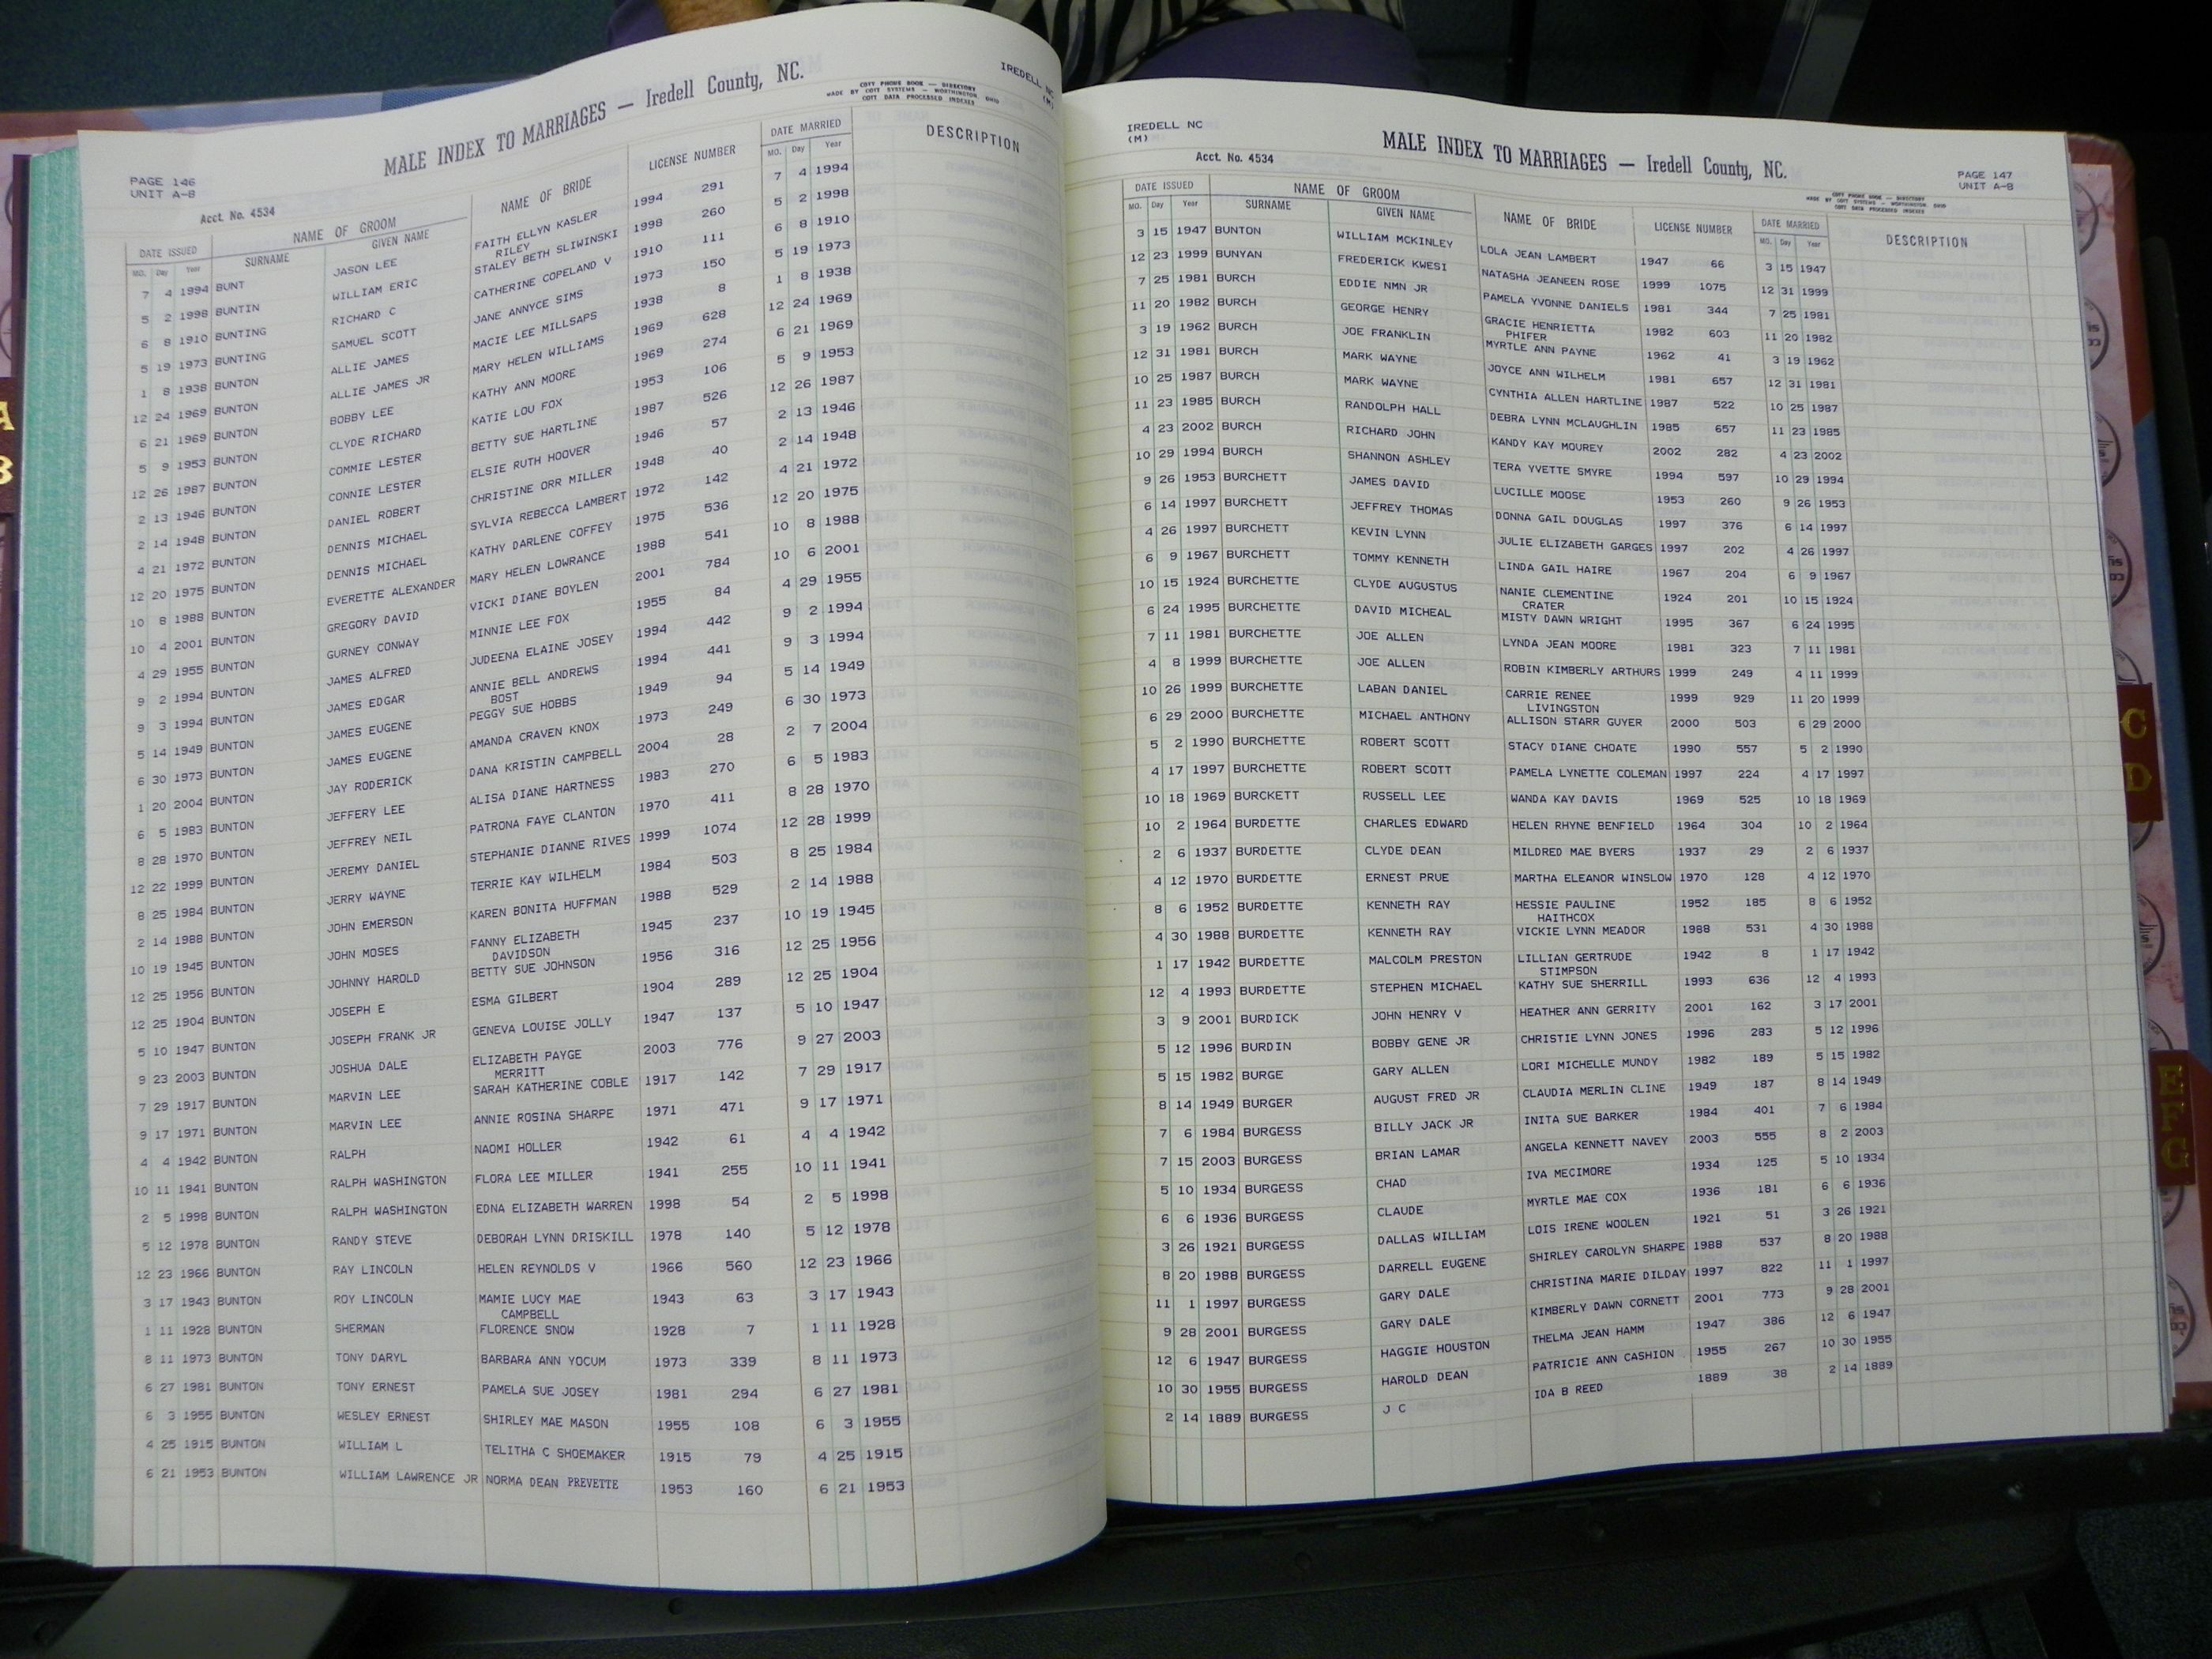 MALE INDEX TO MARRIAGES — Iredell County, NC.
IREDELL NC
(M)
COTT PHONE BOOK — DIRECTORY
MADE BY COTT SYSTEMS — WORTHINGTON, OHIO
COTT DATA PROCESSED INDEXES
PAGE 146
UNIT A-B
Acct. No. 4534
DATE ISSUED NAME OF GROOM NAME OF BRIDE LICENSE NUMBER DATE MARRIED DESCRIPTION
MO. Day Year SURNAME GIVEN NAME MO. Day Year
7 4 1994 BUNT JASON LEE FAITH ELLYN KASLER 1994 291 7 4 1994
RILEY
5 2 1998 BUNTIN WILLIAM ERIC STALEY BETH SLIWINSKI 1998 260 5 2 1998
6 8 1910 BUNTING RICHARD C CATHERINE COPELAND V 1910 111 6 8 1910
5 19 1973 BUNTING SAMUEL SCOTT JANE ANNYCE SIMS 1973 150 5 19 1973
1 8 1938 BUNTON ALLIE JAMES MACIE LEE MILLSAPS 1938 8 1 8 1938
12 24 1969 BUNTON ALLIE JAMES JR MARY HELEN WILLIAMS 1969 628 12 24 1969
6 21 1969 BUNTON BOBBY LEE KATHY ANN MOORE 1969 274 6 21 1969
5 9 1953 BUNTON CLYDE RICHARD KATIE LOU FOX 1953 106 5 9 1953
12 26 1987 BUNTON COMMIE LESTER BETTY SUE HARTLINE 1987 526 12 26 1987
2 13 1946 BUNTON CONNIE LESTER ELSIE RUTH HOOVER 1946 57 2 13 1946
2 14 1948 BUNTON DANIEL ROBERT CHRISTINE ORR MILLER 1948 40 2 14 1948
4 21 1972 BUNTON DENNIS MICHAEL SYLVIA REBECCA LAMBERT 1972 142 4 21 1972
12 20 1975 BUNTON DENNIS MICHAEL KATHY DARLENE COFFEY 1975 536 12 20 1975
10 8 1988 BUNTON EVERETTE ALEXANDER MARY HELEN LOWRANCE 1988 541 10 8 1988
10 4 2001 BUNTON GREGORY DAVID VICKI DIANE BOYLEN 2001 784 10 6 2001
4 29 1955 BUNTON GURNEY CONWAY MINNIE LEE FOX 1955 84 4 29 1955
9 2 1994 BUNTON JAMES ALFRED JUDEENA ELAINE JOSEY 1994 442 9 2 1994
9 3 1994 BUNTON JAMES EDGAR ANNIE BELL ANDREWS 1994 441 9 3 1994
BOST
5 14 1949 BUNTON JAMES EUGENE PEGGY SUE HOBBS 1949 94 5 14 1949
6 30 1973 BUNTON JAMES EUGENE AMANDA CRAVEN KNOX 1973 249 6 30 1973
1 20 2004 BUNTON JAY RODERICK DANA KRISTIN CAMPBELL 2004 28 2 7 2004
6 5 1983 BUNTON JEFFERY LEE ALISA DIANE HARTNESS 1983 270 6 5 1983
8 28 1970 BUNTON JEFFREY NEIL PATRONA FAYE CLANTON 1970 411 8 28 1970
12 22 1999 BUNTON JEREMY DANIEL STEPHANIE DIANNE RIVES 1999 1074 12 28 1999
8 25 1984 BUNTON JERRY WAYNE TERRIE KAY WILHELM 1984 503 8 25 1984
2 14 1988 BUNTON JOHN EMERSON KAREN BONITA HUFFMAN 1988 529 2 14 1988
10 19 1945 BUNTON JOHN MOSES FANNY ELIZABETH 1945 237 10 19 1945
DAVIDSON
12 25 1956 BUNTON JOHNNY HAROLD BETTY SUE JOHNSON 1956 316 12 25 1956
12 25 1904 BUNTON JOSEPH E ESMA GILBERT 1904 289 12 25 1904
5 10 1947 BUNTON JOSEPH FRANK JR GENEVA LOUISE JOLLY 1947 137 5 10 1947
9 23 2003 BUNTON JOSHUA DALE ELIZABETH PAYGE 2003 776 9 27 2003
MERRITT
7 29 1917 BUNTON MARVIN LEE SARAH KATHERINE COBLE 1917 142 7 29 1917
9 17 1971 BUNTON MARVIN LEE ANNIE ROSINA SHARPE 1971 471 9 17 1971
4 4 1942 BUNTON RALPH NAOMI HOLLER 1942 61 4 4 1942
10 11 1941 BUNTON RALPH WASHINGTON FLORA LEE MILLER 1941 255 10 11 1941
2 5 1998 BUNTON RALPH WASHINGTON EDNA ELIZABETH WARREN 1998 54 2 5 1998
5 12 1978 BUNTON RANDY STEVE DEBORAH LYNN DRISKILL 1978 140 5 12 1978
12 23 1966 BUNTON RAY LINCOLN HELEN REYNOLDS V 1966 560 12 23 1966
3 17 1943 BUNTON ROY LINCOLN MAMIE LUCY MAE 1943 63 3 17 1943
CAMPBELL
1 11 1928 BUNTON SHERMAN FLORENCE SNOW 1928 7 1 11 1928
8 11 1973 BUNTON TONY DARYL BARBARA ANN YOCUM 1973 339 8 11 1973
6 27 1981 BUNTON TONY ERNEST PAMELA SUE JOSEY 1981 294 6 27 1981
6 3 1955 BUNTON WESLEY ERNEST SHIRLEY MAE MASON 1955 108 6 3 1955
4 25 1915 BUNTON WILLIAM L TELITHA C SHOEMAKER 1915 79 4 25 1915
6 21 1953 BUNTON WILLIAM LAWRENCE JR NORMA DEAN PREVETTE 1953 160 6 21 1953
IREDELL NC
(M)
Acct. No. 4534
MALE INDEX TO MARRIAGES — Iredell County, NC.
PAGE 147
UNIT A-B
COTT PHONE BOOK — DIRECTORY
MADE BY COTT SYSTEMS — WORTHINGTON, OHIO
COTT DATA PROCESSED INDEXES
DATE ISSUED NAME OF GROOM NAME OF BRIDE LICENSE NUMBER DATE MARRIED DESCRIPTION
MO. Day Year SURNAME GIVEN NAME MO. Day Year
3 15 1947 BUNTON WILLIAM MCKINLEY LOLA JEAN LAMBERT 1947 66 3 15 1947
12 23 1999 BUNYAN FREDERICK KWESI NATASHA JEANEEN ROSE 1999 1075 12 31 1999
7 25 1981 BURCH EDDIE NMN JR PAMELA YVONNE DANIELS 1981 344 7 25 1981
11 20 1982 BURCH GEORGE HENRY GRACIE HENRIETTA 1982 603 11 20 1982
PHIFER
3 19 1962 BURCH JOE FRANKLIN MYRTLE ANN PAYNE 1962 41 3 19 1962
12 31 1981 BURCH MARK WAYNE JOYCE ANN WILHELM 1981 657 12 31 1981
10 25 1987 BURCH MARK WAYNE CYNTHIA ALLEN HARTLINE 1987 522 10 25 1987
11 23 1985 BURCH RANDOLPH HALL DEBRA LYNN MCLAUGHLIN 1985 657 11 23 1985
4 23 2002 BURCH RICHARD JOHN KANDY KAY MOUREY 2002 282 4 23 2002
10 29 1994 BURCH SHANNON ASHLEY TERA YVETTE SMYRE 1994 597 10 29 1994
9 26 1953 BURCHETT JAMES DAVID LUCILLE MOOSE 1953 260 9 26 1953
6 14 1997 BURCHETT JEFFREY THOMAS DONNA GAIL DOUGLAS 1997 376 6 14 1997
4 26 1997 BURCHETT KEVIN LYNN JULIE ELIZABETH GARGES 1997 202 4 26 1997
6 9 1967 BURCHETT TOMMY KENNETH LINDA GAIL HAIRE 1967 204 6 9 1967
10 15 1924 BURCHETTE CLYDE AUGUSTUS NANIE CLEMENTINE 1924 201 10 15 1924
CRATER
6 24 1995 BURCHETTE DAVID MICHEAL MISTY DAWN WRIGHT 1995 367 6 24 1995
7 11 1981 BURCHETTE JOE ALLEN LYNDA JEAN MOORE 1981 323 7 11 1981
4 8 1999 BURCHETTE JOE ALLEN ROBIN KIMBERLY ARTHURS 1999 249 4 11 1999
10 26 1999 BURCHETTE LABAN DANIEL CARRIE RENEE 1999 929 11 20 1999
LIVINGSTON
6 29 2000 BURCHETTE MICHAEL ANTHONY ALLISON STARR GUYER 2000 503 6 29 2000
5 2 1990 BURCHETTE ROBERT SCOTT STACY DIANE CHOATE 1990 557 5 2 1990
4 17 1997 BURCHETTE ROBERT SCOTT PAMELA LYNETTE COLEMAN 1997 224 4 17 1997
10 18 1969 BURCKETT RUSSELL LEE WANDA KAY DAVIS 1969 525 10 18 1969
10 2 1964 BURDETTE CHARLES EDWARD HELEN RHYNE BENFIELD 1964 304 10 2 1964
2 6 1937 BURDETTE CLYDE DEAN MILDRED MAE BYERS 1937 29 2 6 1937
4 12 1970 BURDETTE ERNEST PRUE MARTHA ELEANOR WINSLOW 1970 128 4 12 1970
8 6 1952 BURDETTE KENNETH RAY HESSIE PAULINE 1952 185 8 6 1952
HAITHCOX
4 30 1988 BURDETTE KENNETH RAY VICKIE LYNN MEADOR 1988 531 4 30 1988
1 17 1942 BURDETTE MALCOLM PRESTON LILLIAN GERTRUDE 1942 8 1 17 1942
STIMPSON
12 4 1993 BURDETTE STEPHEN MICHAEL KATHY SUE SHERRILL 1993 636 12 4 1993
3 9 2001 BURDICK JOHN HENRY V HEATHER ANN GERRITY 2001 162 3 17 2001
5 12 1996 BURDIN BOBBY GENE JR CHRISTIE LYNN JONES 1996 283 5 12 1996
5 15 1982 BURGE GARY ALLEN LORI MICHELLE MUNDY 1982 189 5 15 1982
8 14 1949 BURGER AUGUST FRED JR CLAUDIA MERLIN CLINE 1949 187 8 14 1949
7 6 1984 BURGESS BILLY JACK JR INITA SUE BARKER 1984 401 7 6 1984
7 15 2003 BURGESS BRIAN LAMAR ANGELA KENNETT NAVEY 2003 555 8 2 2003
5 10 1934 BURGESS CHAD IVA MECIMORE 1934 125 5 10 1934
6 6 1936 BURGESS CLAUDE MYRTLE MAE COX 1936 181 6 6 1936
3 26 1921 BURGESS DALLAS WILLIAM LOIS IRENE WOOLEN 1921 51 3 26 1921
8 20 1988 BURGESS DARRELL EUGENE SHIRLEY CAROLYN SHARPE 1988 537 8 20 1988
11 1 1997 BURGESS GARY DALE CHRISTINA MARIE DILDAY 1997 822 11 1 1997
9 28 2001 BURGESS GARY DALE KIMBERLY DAWN CORNETT 2001 773 9 28 2001
12 6 1947 BURGESS HAGGIE HOUSTON THELMA JEAN HAMM 1947 386 12 6 1947
10 30 1955 BURGESS HAROLD DEAN PATRICIE ANN CASHION 1955 267 10 30 1955
2 14 1889 BURGESS J C IDA B REED 1889 38 2 14 1889
A
B
C
D
E
F
G